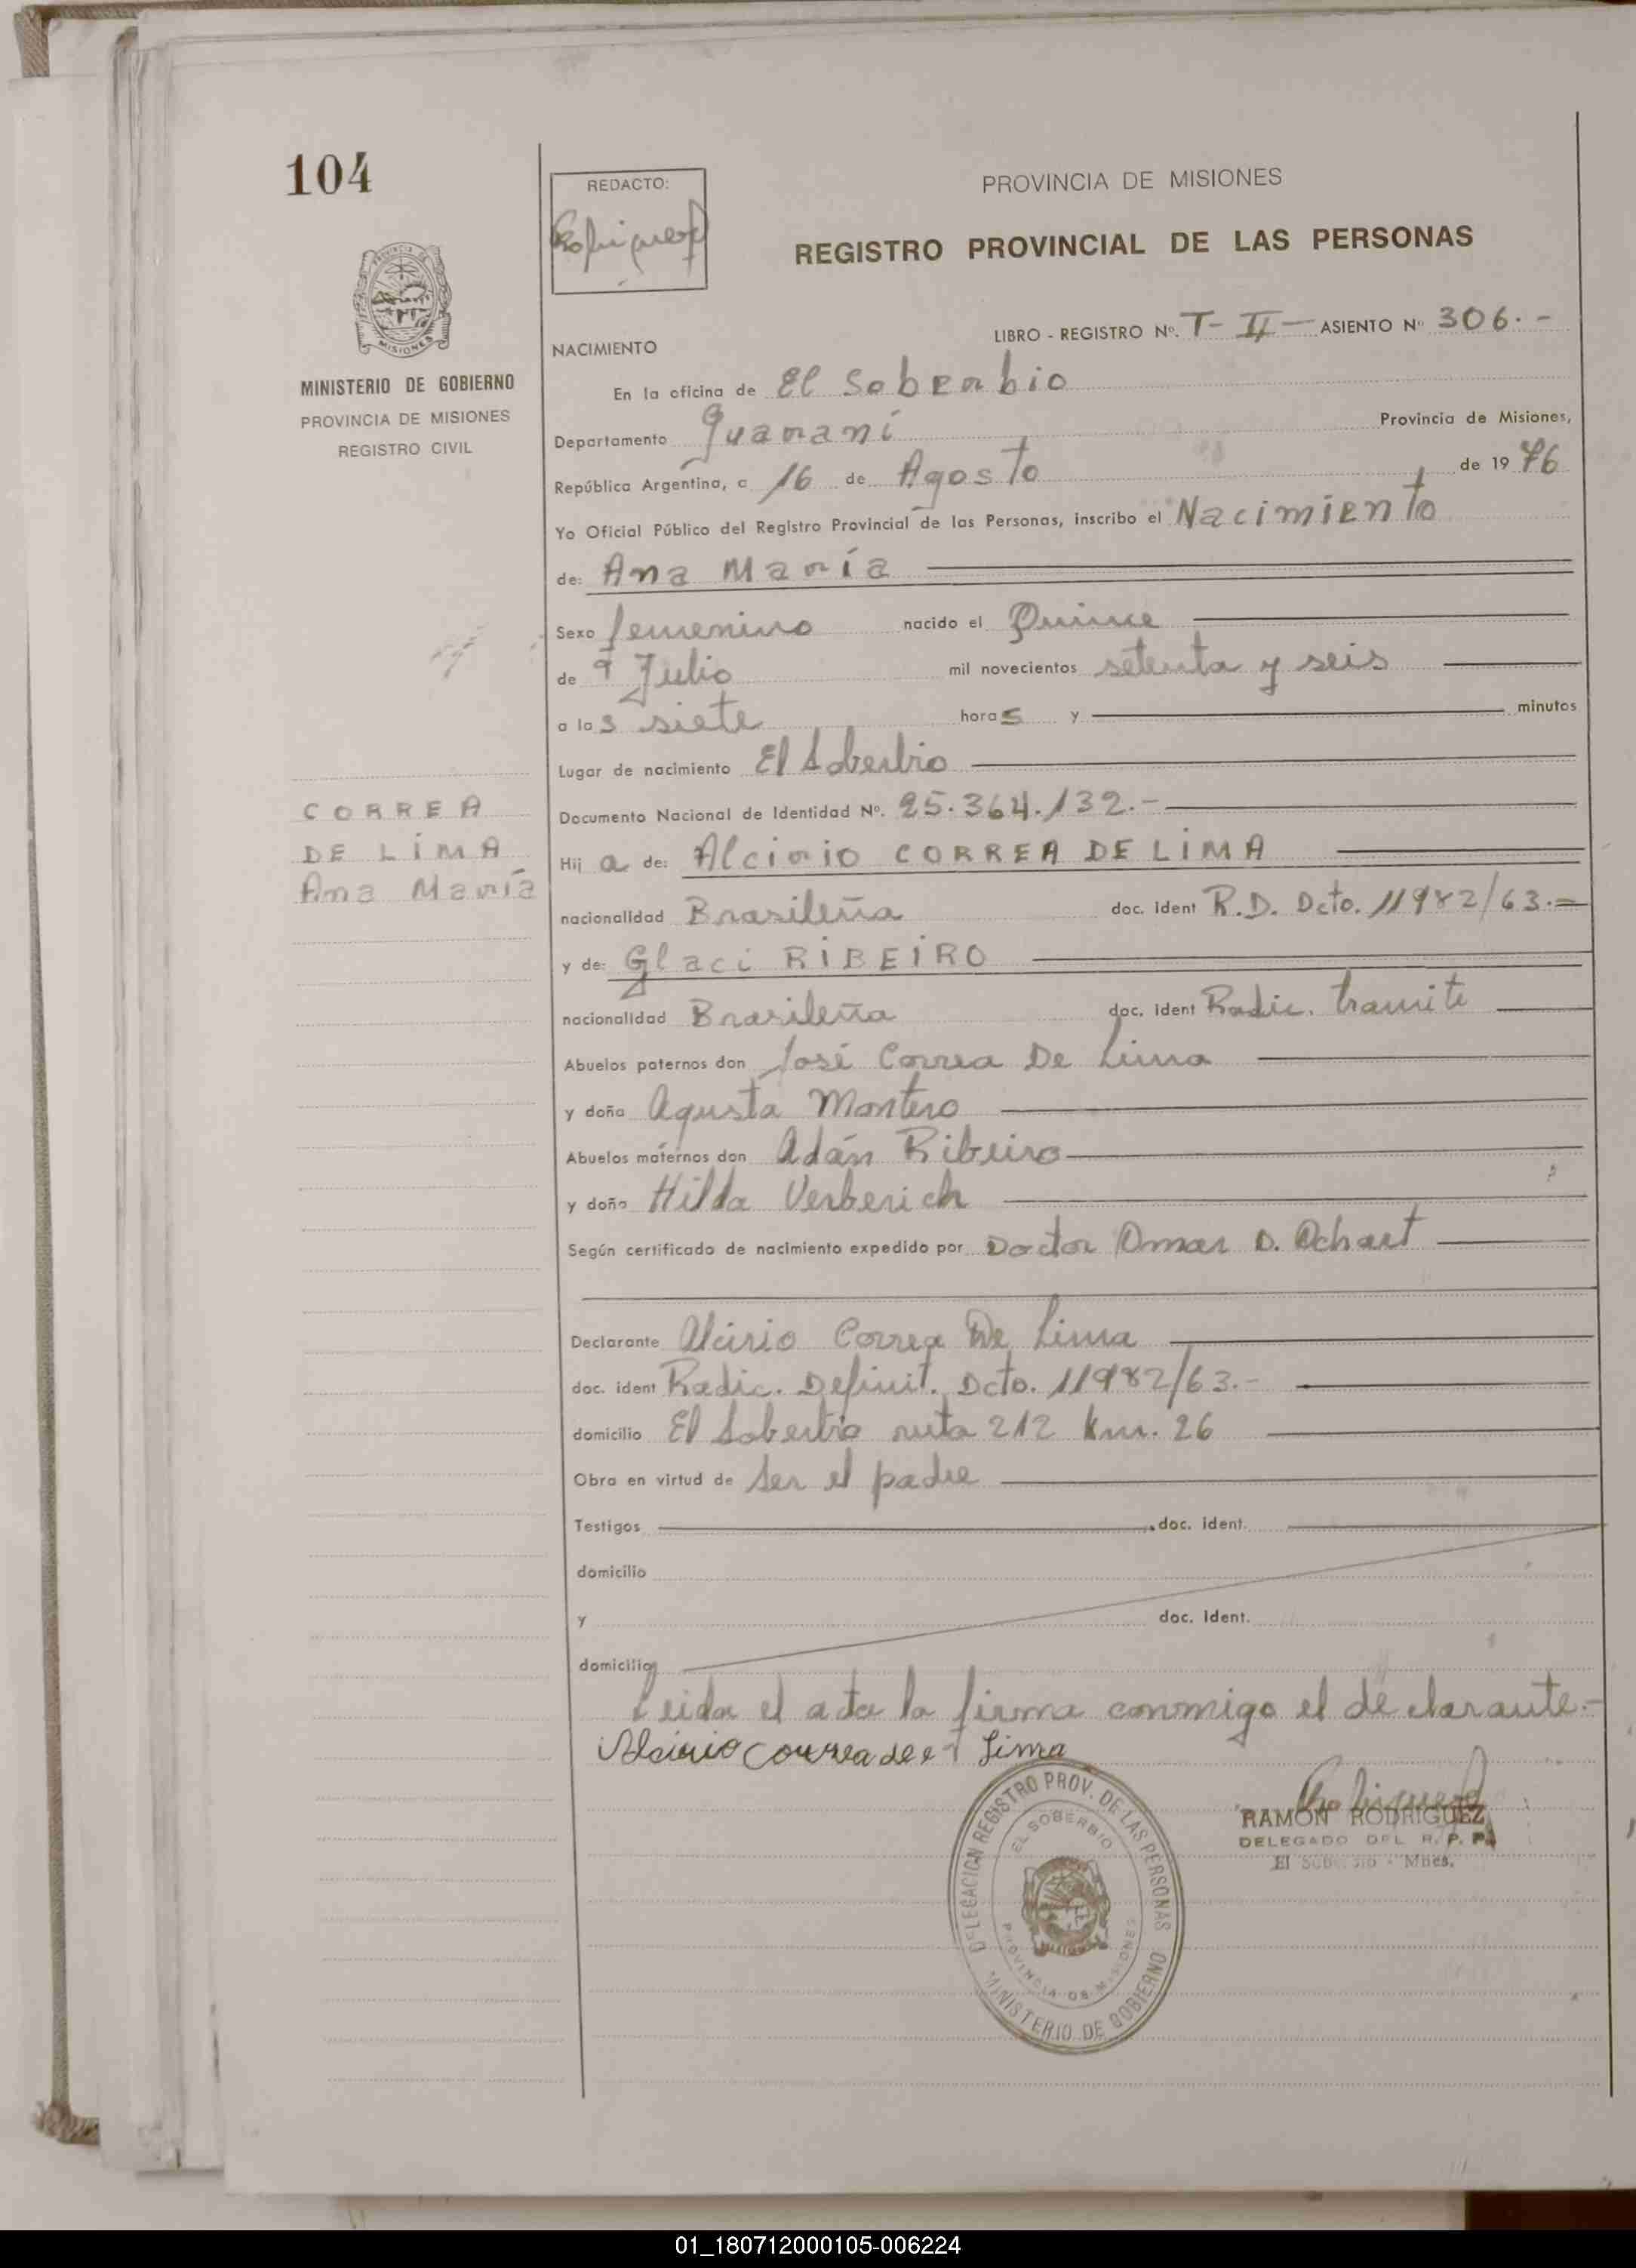 104
REDACTO:
PROVINCIA DE MISIONES
REGISTRO PROVINCIAL DE LAS PERSONAS
MISIONES
MINISTERIO DE GOBIERNO
PROVINCIA DE MISIONES
REGISTRO CIVIL
LIBRO - REGISTRO Nº. T- II - ASIENTO Nº 306.-
NACIMIENTO
En la oficina de El Soberbio
Departamento Guaraní Provincia de Misiones,
República Argentina, a 16 de Agosto de 1976
Yo Oficial Público del Registro Provincial de las Personas, inscribo el Nacimiento
de: Ana María
Sexo femenino nacido el Quince
de Julio mil novecientos setenta y seis
a las siete horas y minutos
Lugar de nacimiento El Soberbio
Documento Nacional de Identidad Nº. 25.364.132.-
CORREA
DE LIMA
Ana María
Hija de: Alcirio CORREA DE LIMA
nacionalidad Brasileña doc. ident R.D. Dcto. 11982/63.=
y de: Glaci RIBEIRO
nacionalidad Brasileña doc. ident Radic. tramite
Abuelos paternos don José Correa De Lima
y doña Agusta Montero
Abuelos maternos don Adán Ribeiro
y doña Hilda Verberich
Según certificado de nacimiento expedido por Doctor Omar D. Ochart
Declarante Alcirio Correa De Lima
doc. ident Radic. Definit. Dcto. 11982/63.-
domicilio El Soberbio ruta 212 Km. 26
Obra en virtud de ser el padre
Testigos doc. ident.
domicilio
y doc. Ident.
domicilio
Leida el acta la firma conmigo el declarante.-
Alcirio Correa de Lima
DELEGACION REGISTRO PROV. DE LAS PERSONAS
EL SOBERBIO
PROVINCIA DE MISIONES
MINISTERIO DE GOBIERNO
RAMON RODRIGUEZ
DELEGADO DEL R. P. P.
El Soberbio - Mnes.
01_180712000105-006224